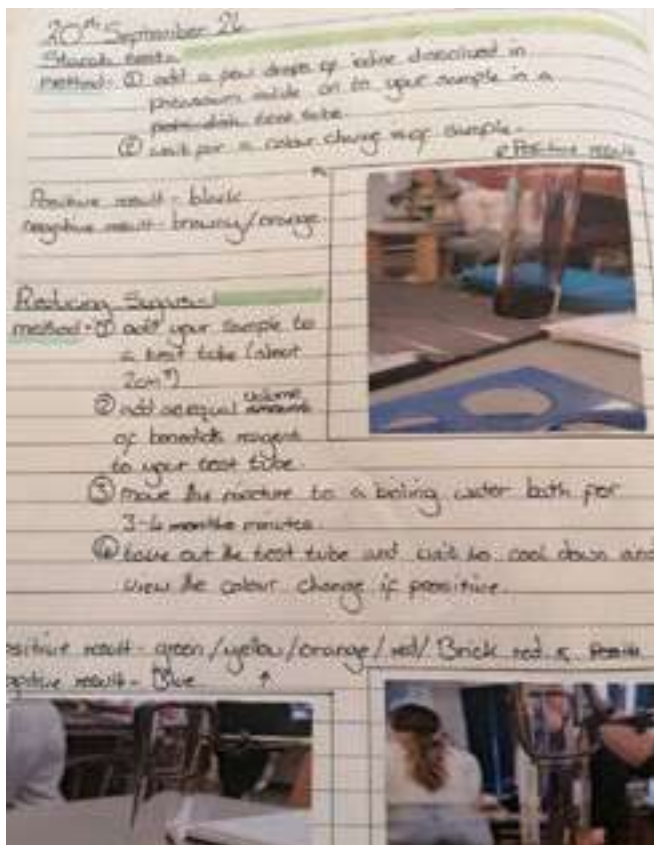 20th September 24
Starch test:
method- ① add a few drops of iodine dissolved in
potassium iodide on to your sample in a
test tube.
② wait for a colour change of sample.
Positive result
Positive result - black
negative result - browny/orange.
Reducing Sugars
method- ① add your sample to
a test tube (about
2cm³)
② add an equal volume
of benedicts reagent
to your test tube.
③ move the mixture to a boiling water bath for
minutes.
④ take out the test tube and wait to cool down and
view the colour change if positive.
sitive result - green/yellow/orange/red/Brick red
gative result - Blue